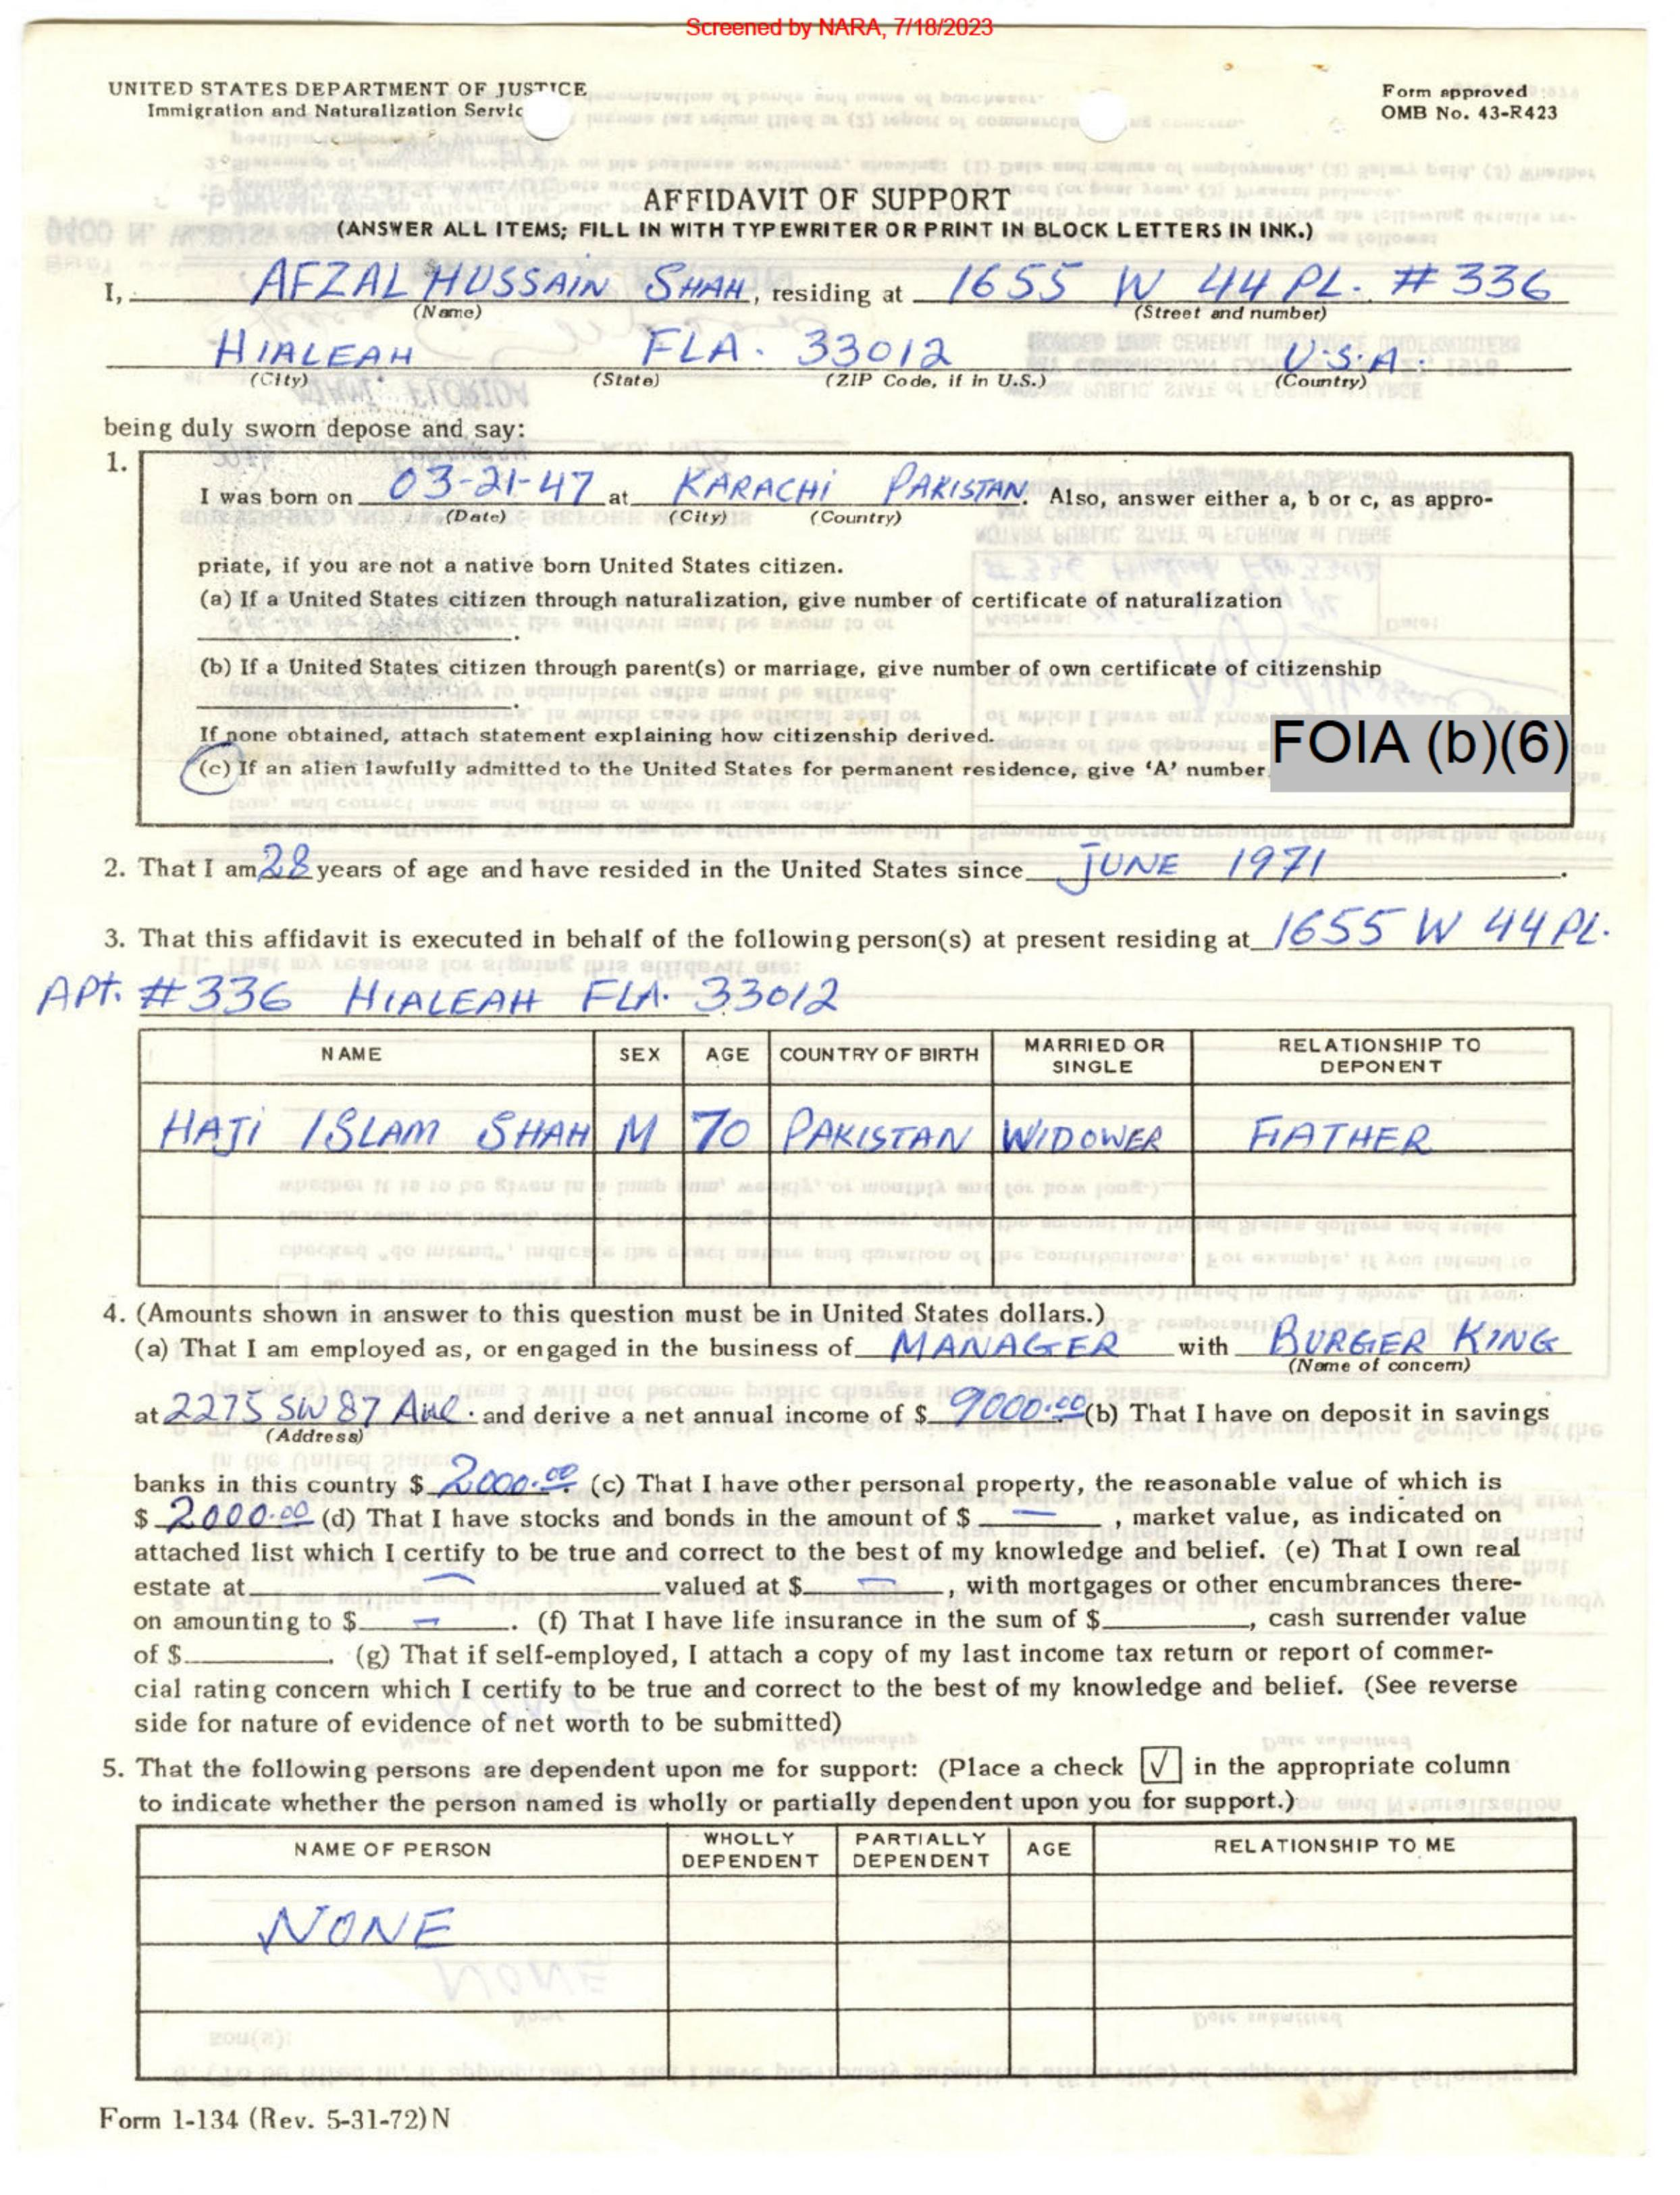 Screened by NARA, 7/18/2023
UNITED STATES DEPARTMENT OF JUSTICE
Immigration and Naturalization Servic
Form approved
OMB No. 43-R423
AFFIDAVIT OF SUPPORT
(ANSWER ALL ITEMS; FILL IN WITH TYPEWRITER OR PRINT IN BLOCK LETTERS IN INK.)
I, AFZAL HUSSAIN SHAH, residing at 1655 W 44 PL. # 336
(Name) (Street and number)
HIALEAH FLA. 33012 U.S.A.
(City) (State) (ZIP Code, if in U.S.) (Country)
being duly sworn depose and say:
1.
I was born on 03-21-47 at KARACHI PAKISTAN. Also, answer either a, b or c, as appro-
(Date) (City) (Country)
priate, if you are not a native born United States citizen.
(a) If a United States citizen through naturalization, give number of certificate of naturalization
.
(b) If a United States citizen through parent(s) or marriage, give number of own certificate of citizenship
.
If none obtained, attach statement explaining how citizenship derived.
(c) If an alien lawfully admitted to the United States for permanent residence, give 'A' number FOIA (b)(6)
2. That I am 28 years of age and have resided in the United States since JUNE 1971.
3. That this affidavit is executed in behalf of the following person(s) at present residing at 1655 W 44 PL.
APt. #336 HIALEAH FLA. 33012
NAME SEX AGE COUNTRY OF BIRTH MARRIED OR SINGLE RELATIONSHIP TO DEPONENT
HAJI ISLAM SHAH M 70 PAKISTAN WIDOWER FATHER
4. (Amounts shown in answer to this question must be in United States dollars.)
(a) That I am employed as, or engaged in the business of MANAGER with BURGER KING
(Name of concern)
at 2275 SW 87 Ave. and derive a net annual income of $ 9000.00 (b) That I have on deposit in savings
(Address)
banks in this country $ 2000.00. (c) That I have other personal property, the reasonable value of which is
$ 2000.00 (d) That I have stocks and bonds in the amount of $ —, market value, as indicated on
attached list which I certify to be true and correct to the best of my knowledge and belief. (e) That I own real
estate at — valued at $ —, with mortgages or other encumbrances there-
on amounting to $ —. (f) That I have life insurance in the sum of $ , cash surrender value
of $ . (g) That if self-employed, I attach a copy of my last income tax return or report of commer-
cial rating concern which I certify to be true and correct to the best of my knowledge and belief. (See reverse
side for nature of evidence of net worth to be submitted)
5. That the following persons are dependent upon me for support: (Place a check √ in the appropriate column
to indicate whether the person named is wholly or partially dependent upon you for support.)
NAME OF PERSON WHOLLY DEPENDENT PARTIALLY DEPENDENT AGE RELATIONSHIP TO ME
NONE
Form I-134 (Rev. 5-31-72)N